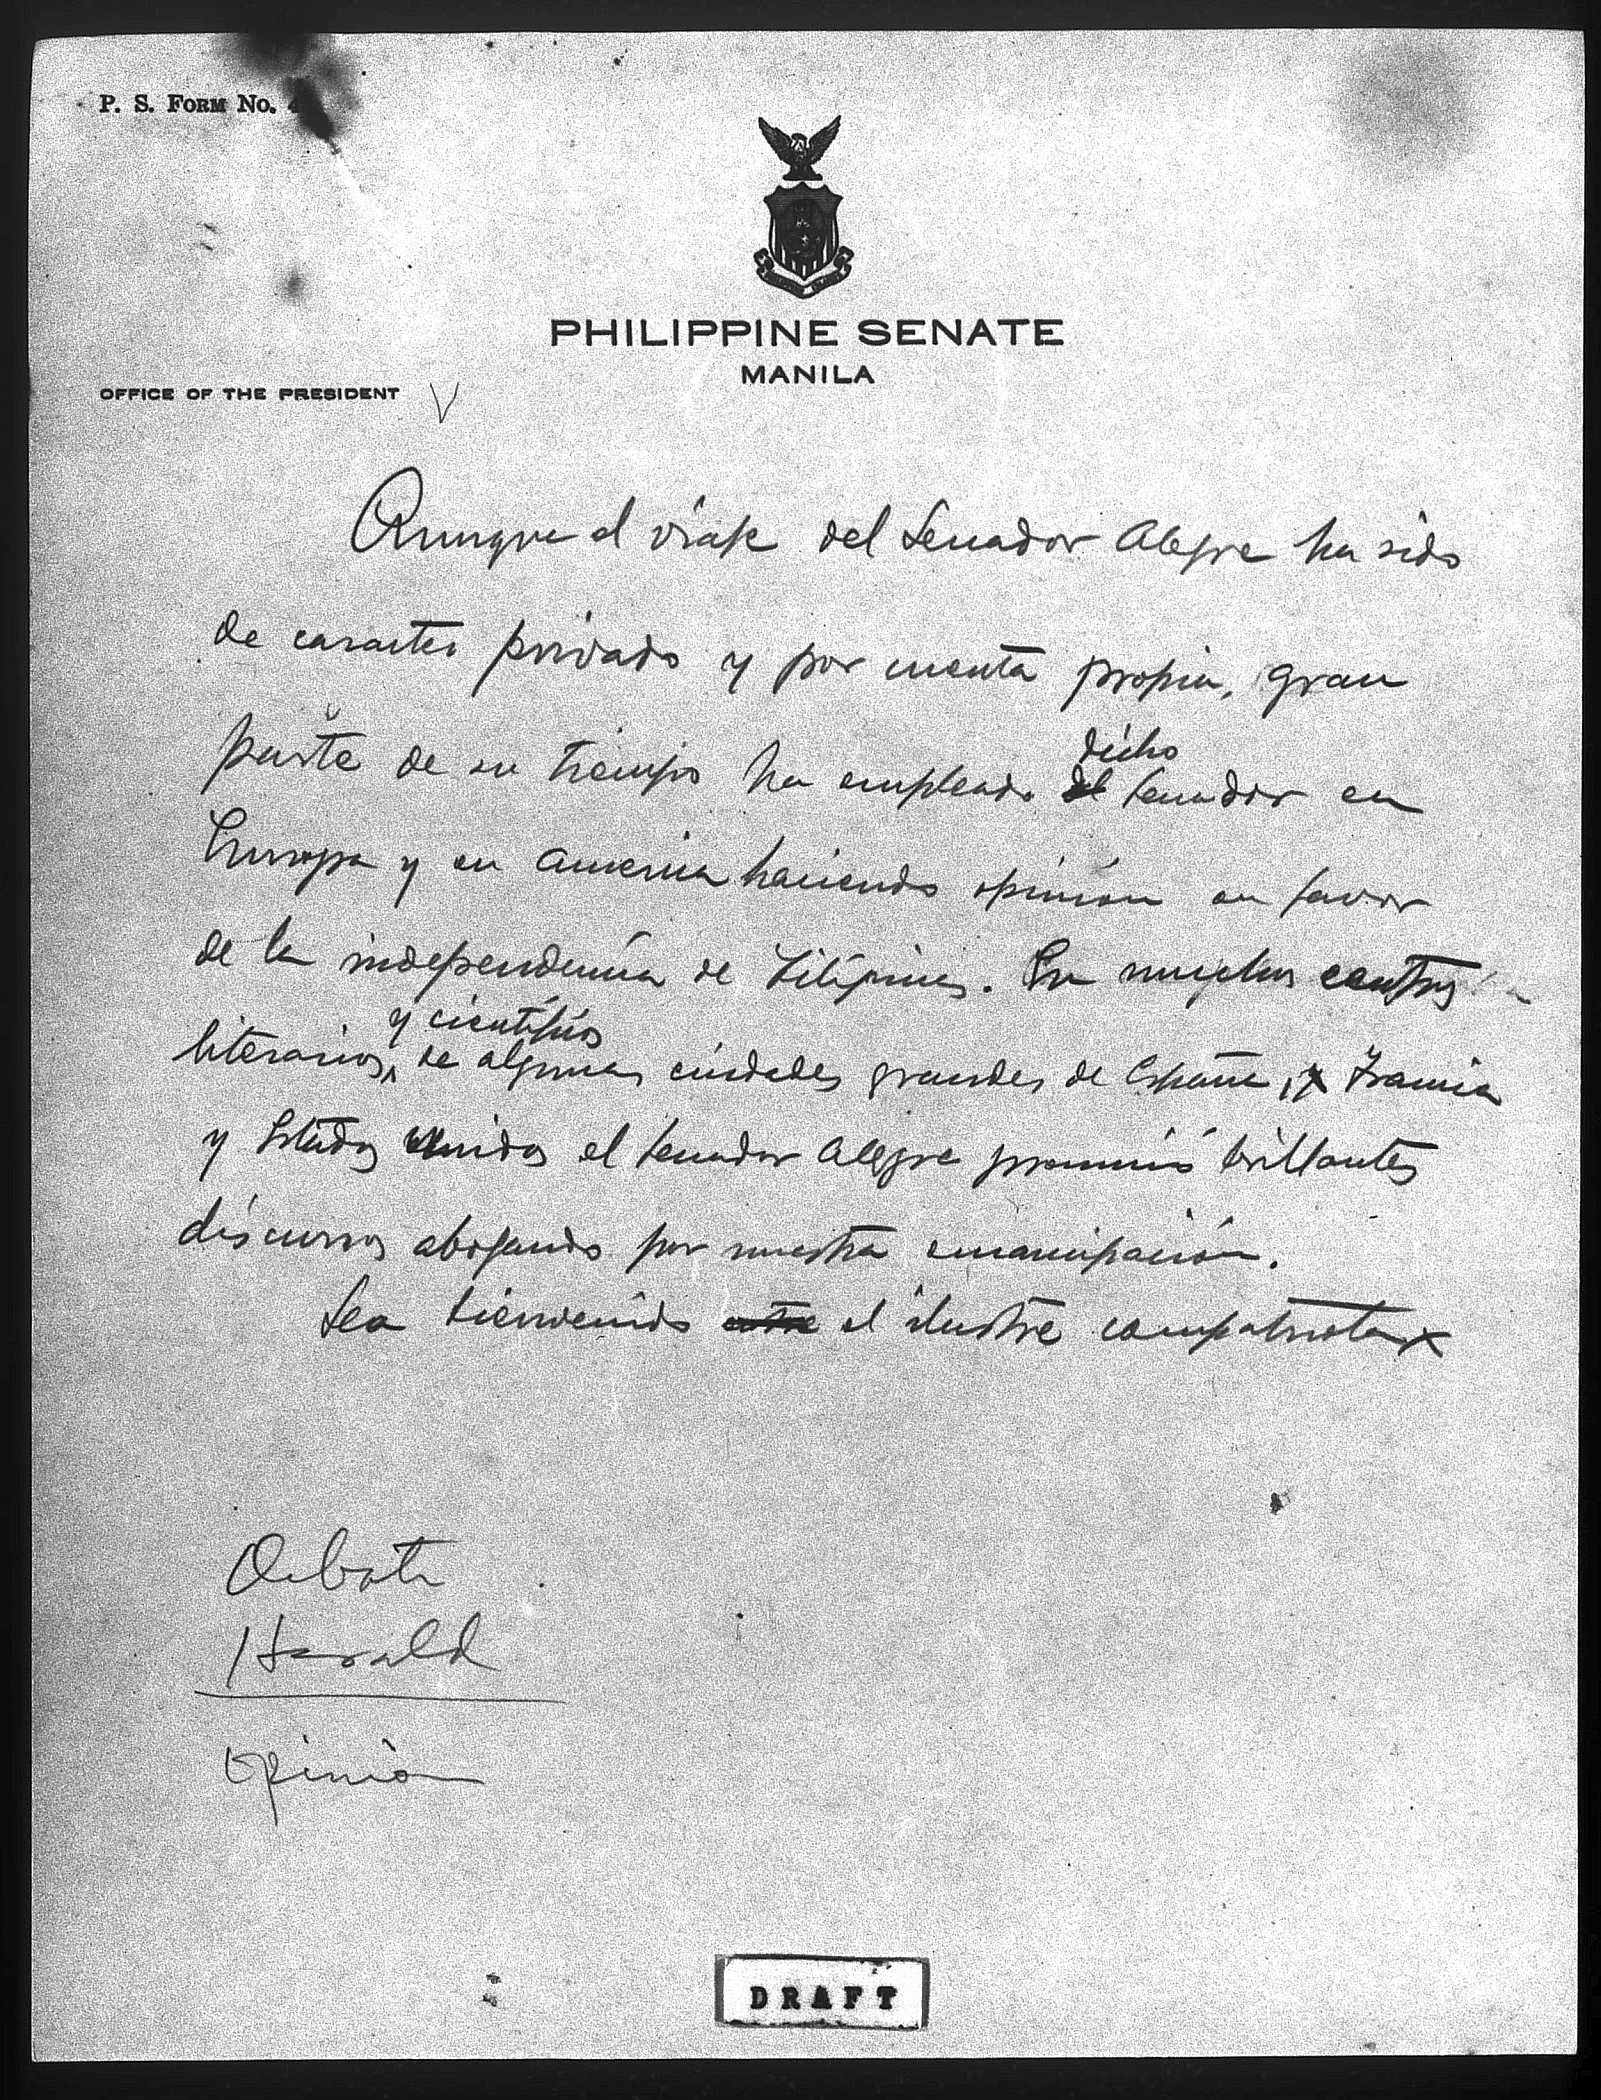 P. S. Form No.
PHILIPPINE SENATE
MANILA
OFFICE OF THE PRESIDENT
Aunque el viaje del Senador Alegre ha sido
de caracter privado y por cuenta propia, gran
parte de su tiempo ha empleado dicho Senador en
Europa y en America haciendo opinión en favor
de la independencia de Filipinas. En muchos centros
literarios y científicos de algunas ciudades grandes de España, Francia
y Estados Unidos el Senador Alegre pronunció brillantes
discursos abogando por nuestra emancipación.
Sea bienvenido el ilustre compatriota
Debate
Herald
Opinión
DRAFT